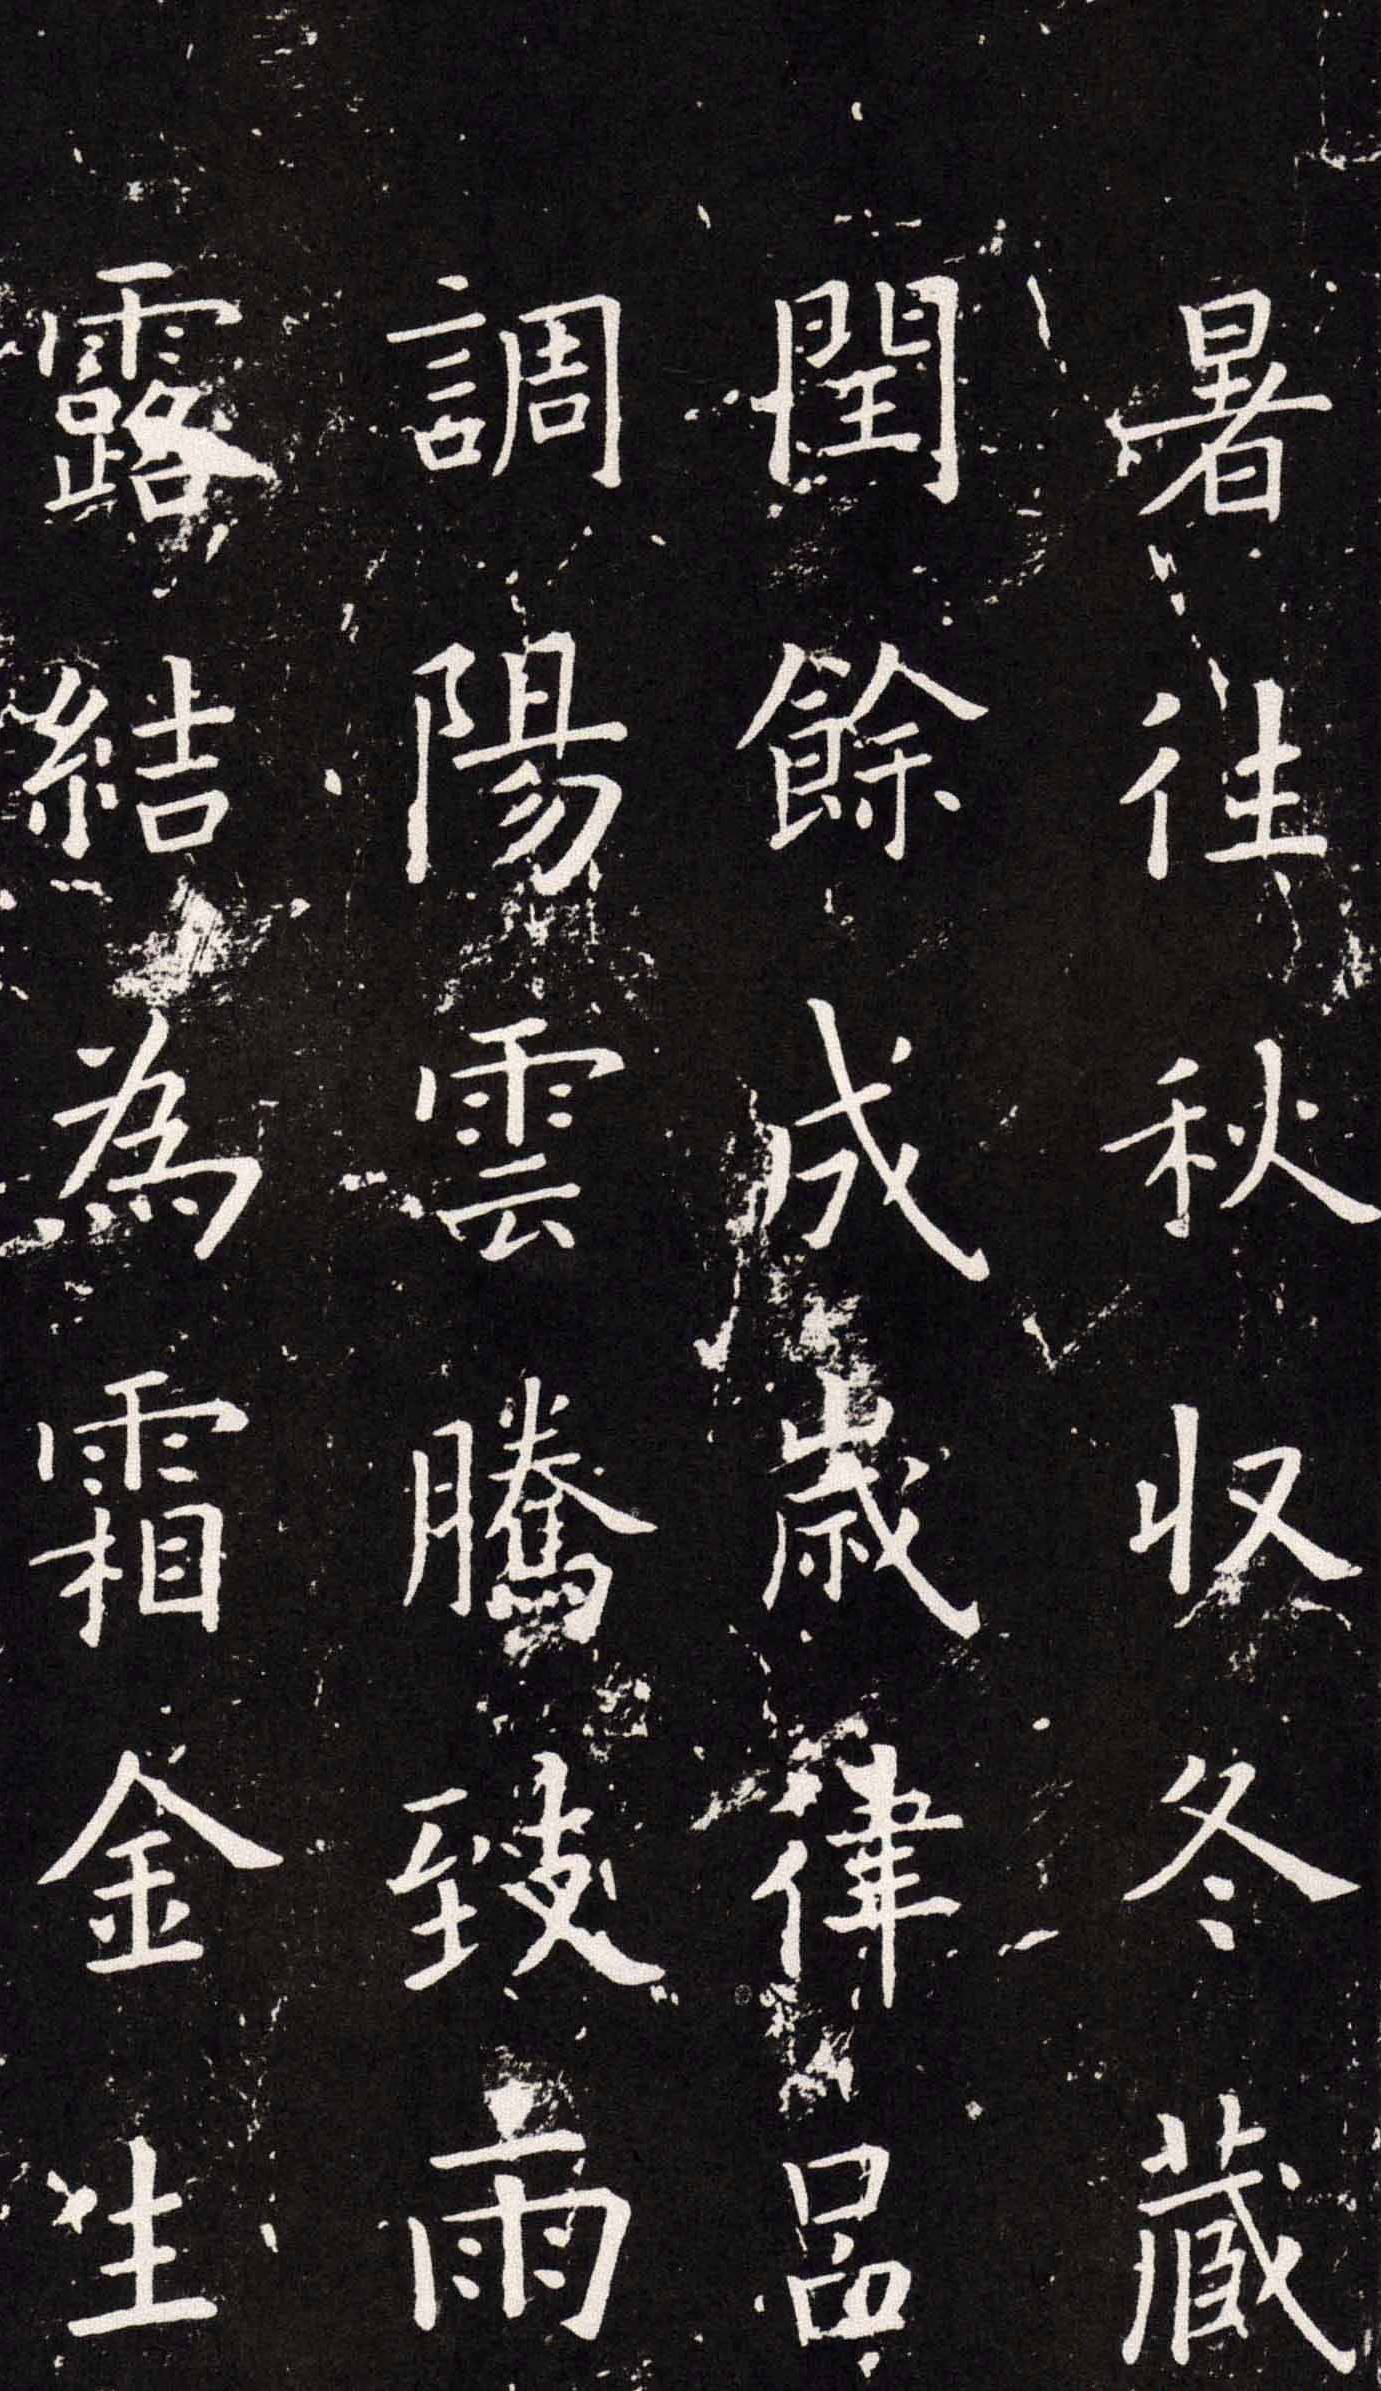 暑往秋收冬藏
閏餘成歲律呂
調陽雲騰致雨
露結為霜金生